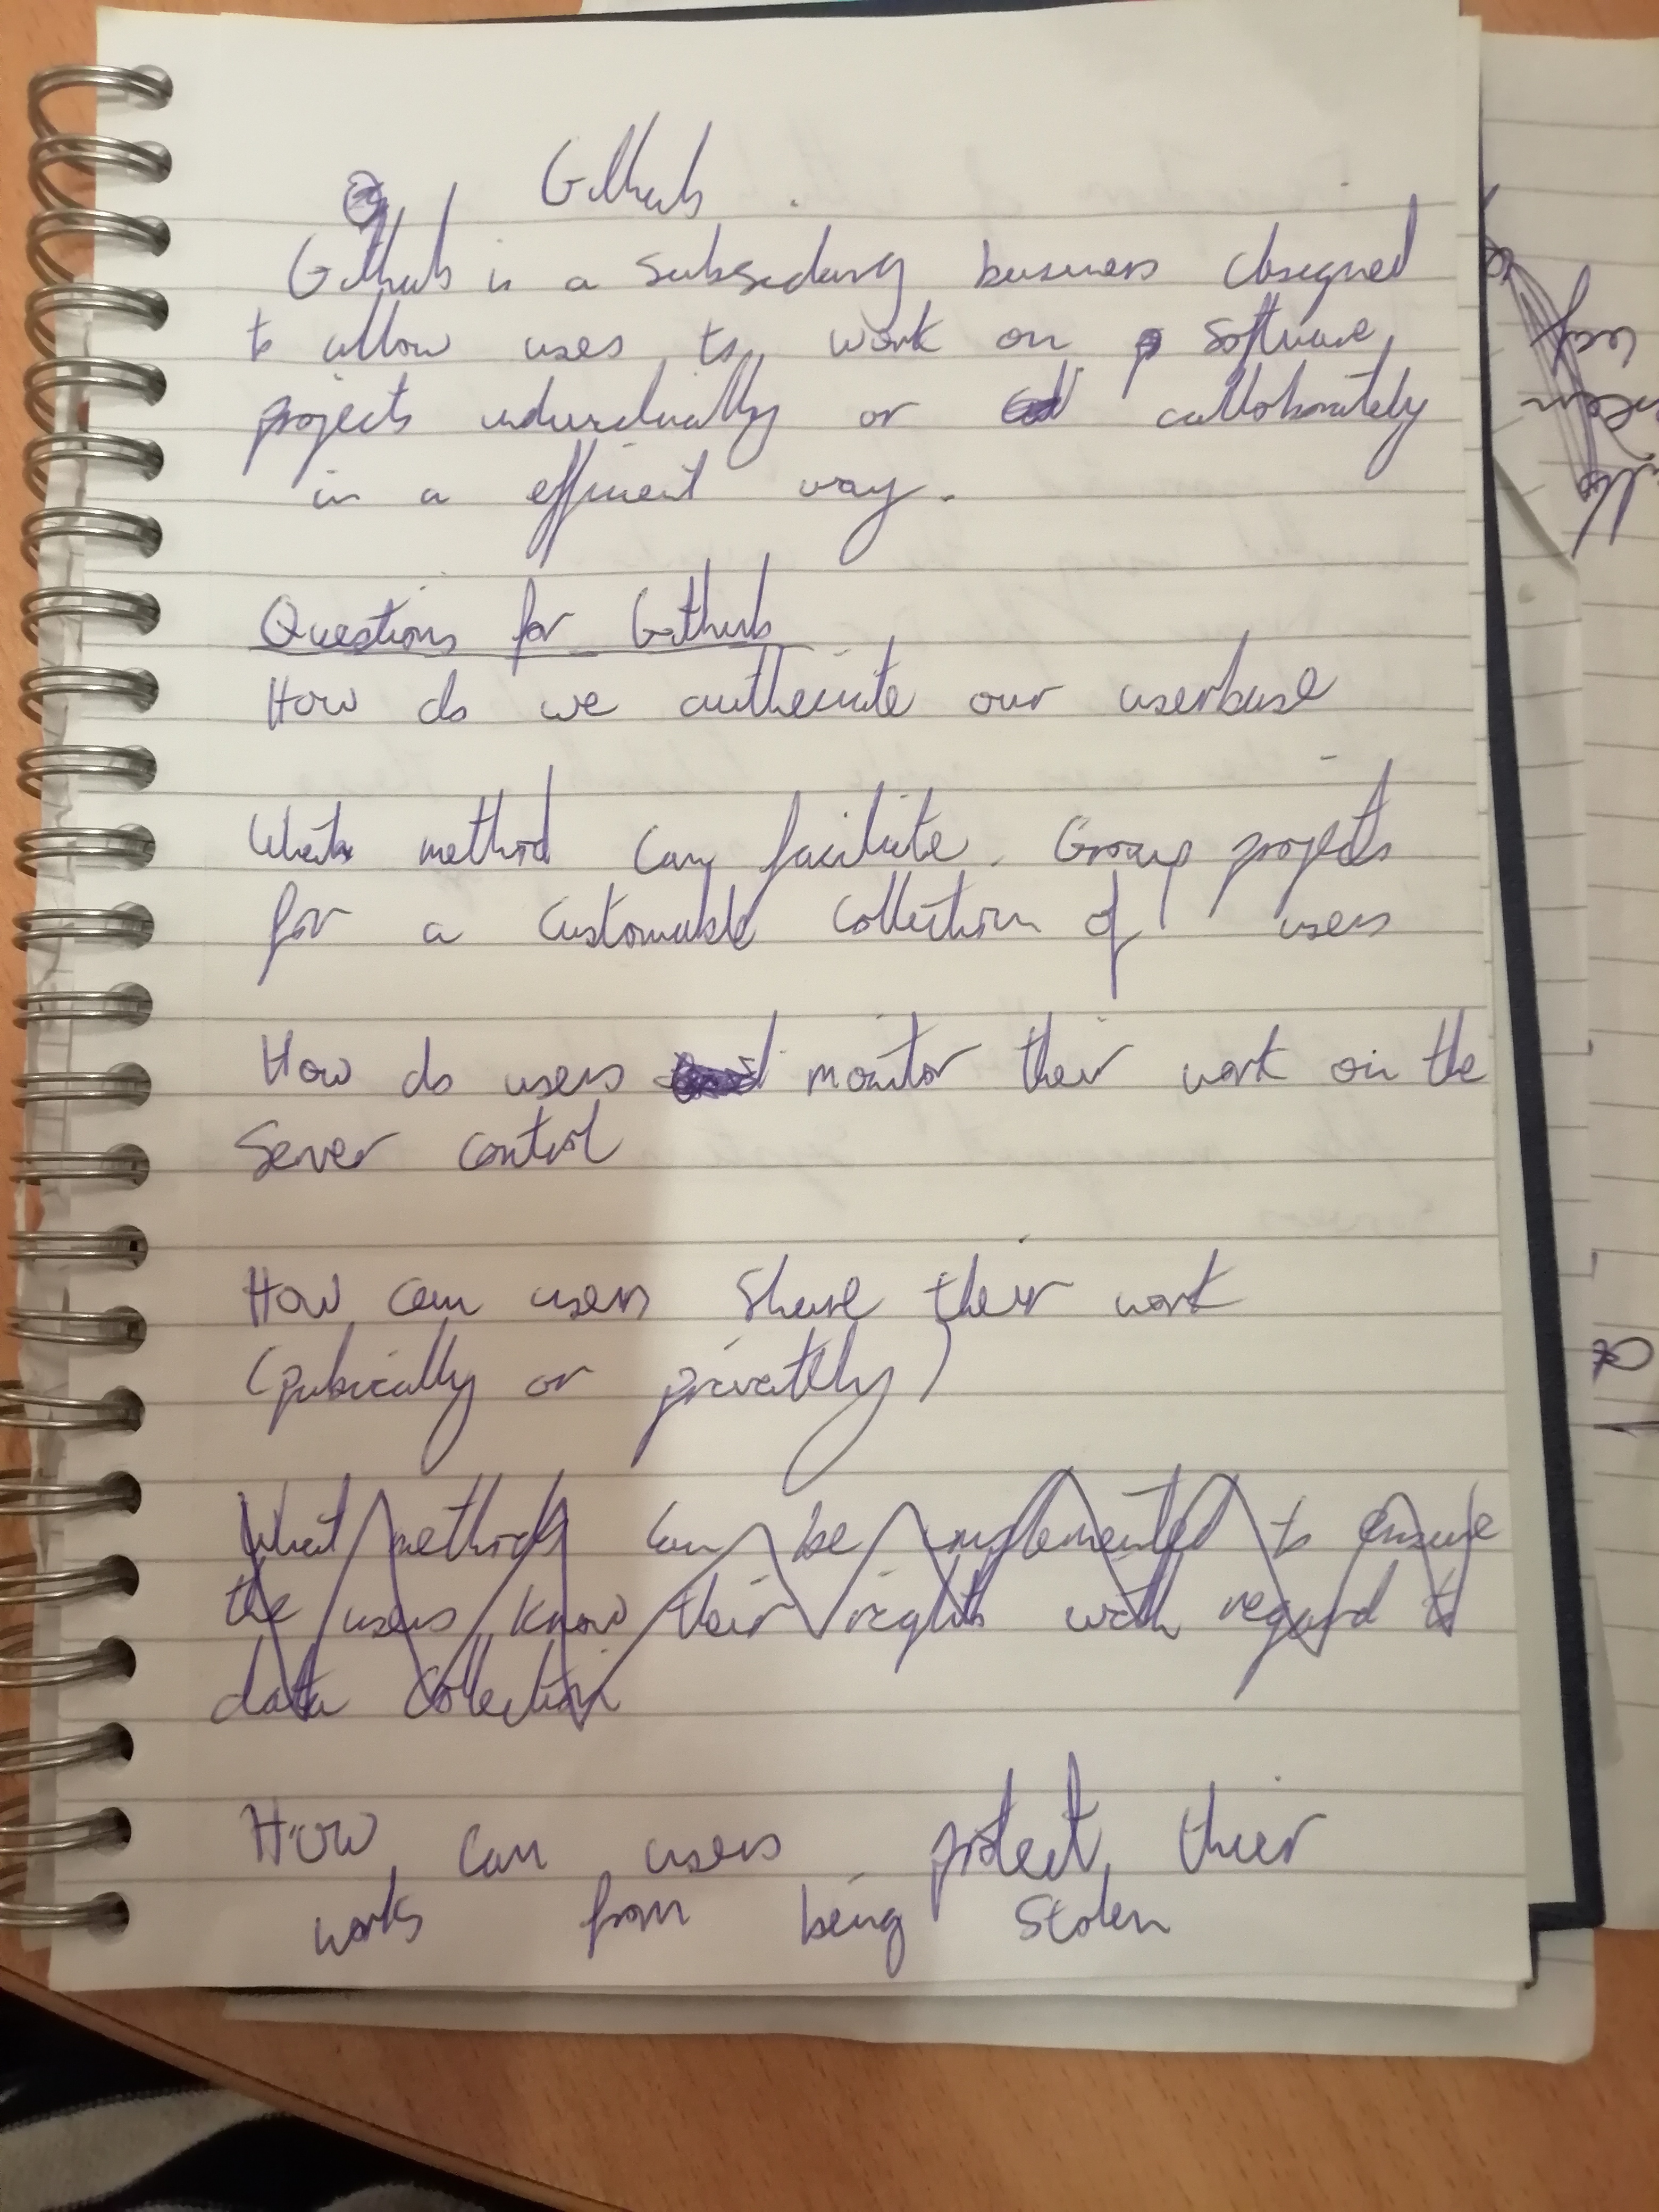 Github
Github is a subsediary business designed
to allow uses to work on software
projects individually or collaborately
in a efficient way.
Questions for Github
How do we authenicate our userbase
What method can facilitate Group projects
for a customable collection of users
How do users monitor their work on the
Server control
How can users share their work
(publically or privatelly)
What methods can be implemented to ensure
the users know their rights with regard to
data collection
How can users protect thier
works from being stolen